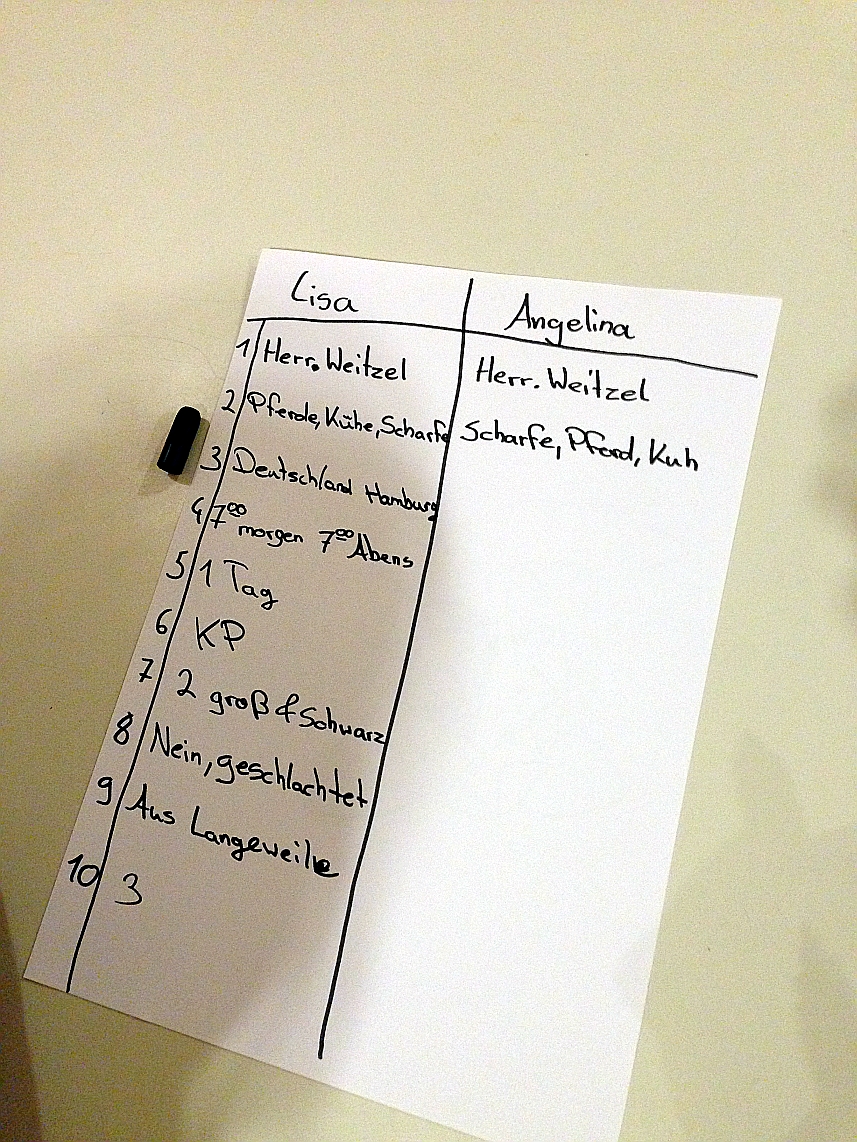 Lisa Angelina
1 Herr. Weitzel Herr. Weitzel
2 Pferde, Kühe, Scharfe Scharfe, Pferd, Kuh
3 Deutschland Hamburg
4 7⁰⁰ morgen 7⁰⁰ Abens
5 1 Tag
6 KP
7 2 groß & Schwarz
8 Nein, geschlachtet
9 Aus Langeweile
10 3